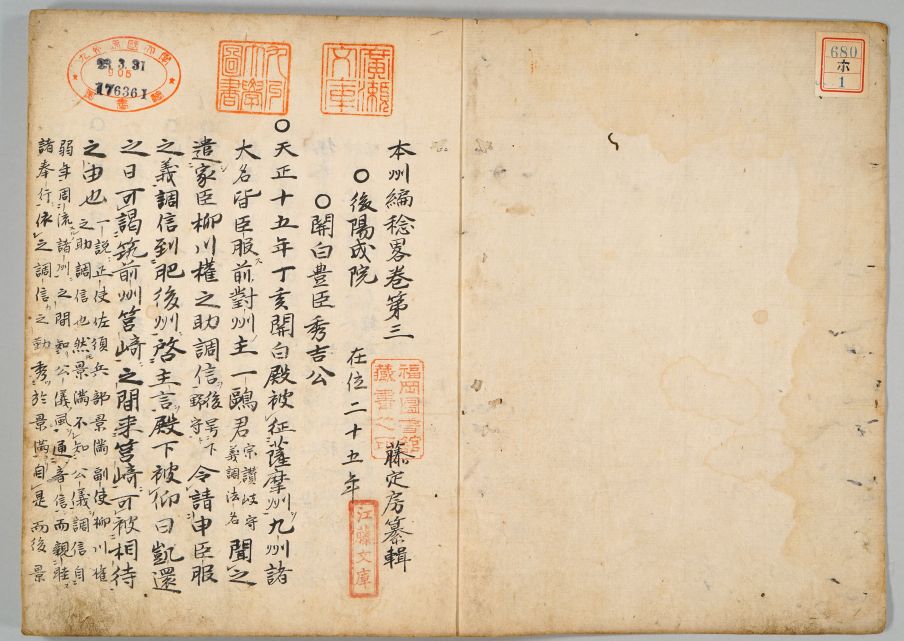 680
ホ
1
廣瀬文庫
九州大學圖書
176361
本州編稔畧巻第三
藤定房纂輯
○後陽成院　在位二十五年
江藤文庫
○関白豊臣秀吉公
○天正十五年丁亥関白殿被征薩摩州九州諸
大名皆臣服前對州主一鷗君宗讃岐守義調法名聞之
遣家臣柳川權之助調信後号下野守令請申臣服
之義調信到肥後州啓主言殿下被仰曰凱還
之日可謁筑前州筥崎之間来筥崎可被相待
之由也一説正使佐須兵部景満副使柳川權
之助調信也然景満不知公儀調信自
弱年周流諸州之間知公儀風通音信而親睦
諸奉行依之調信之勤秀於景満自是而後景